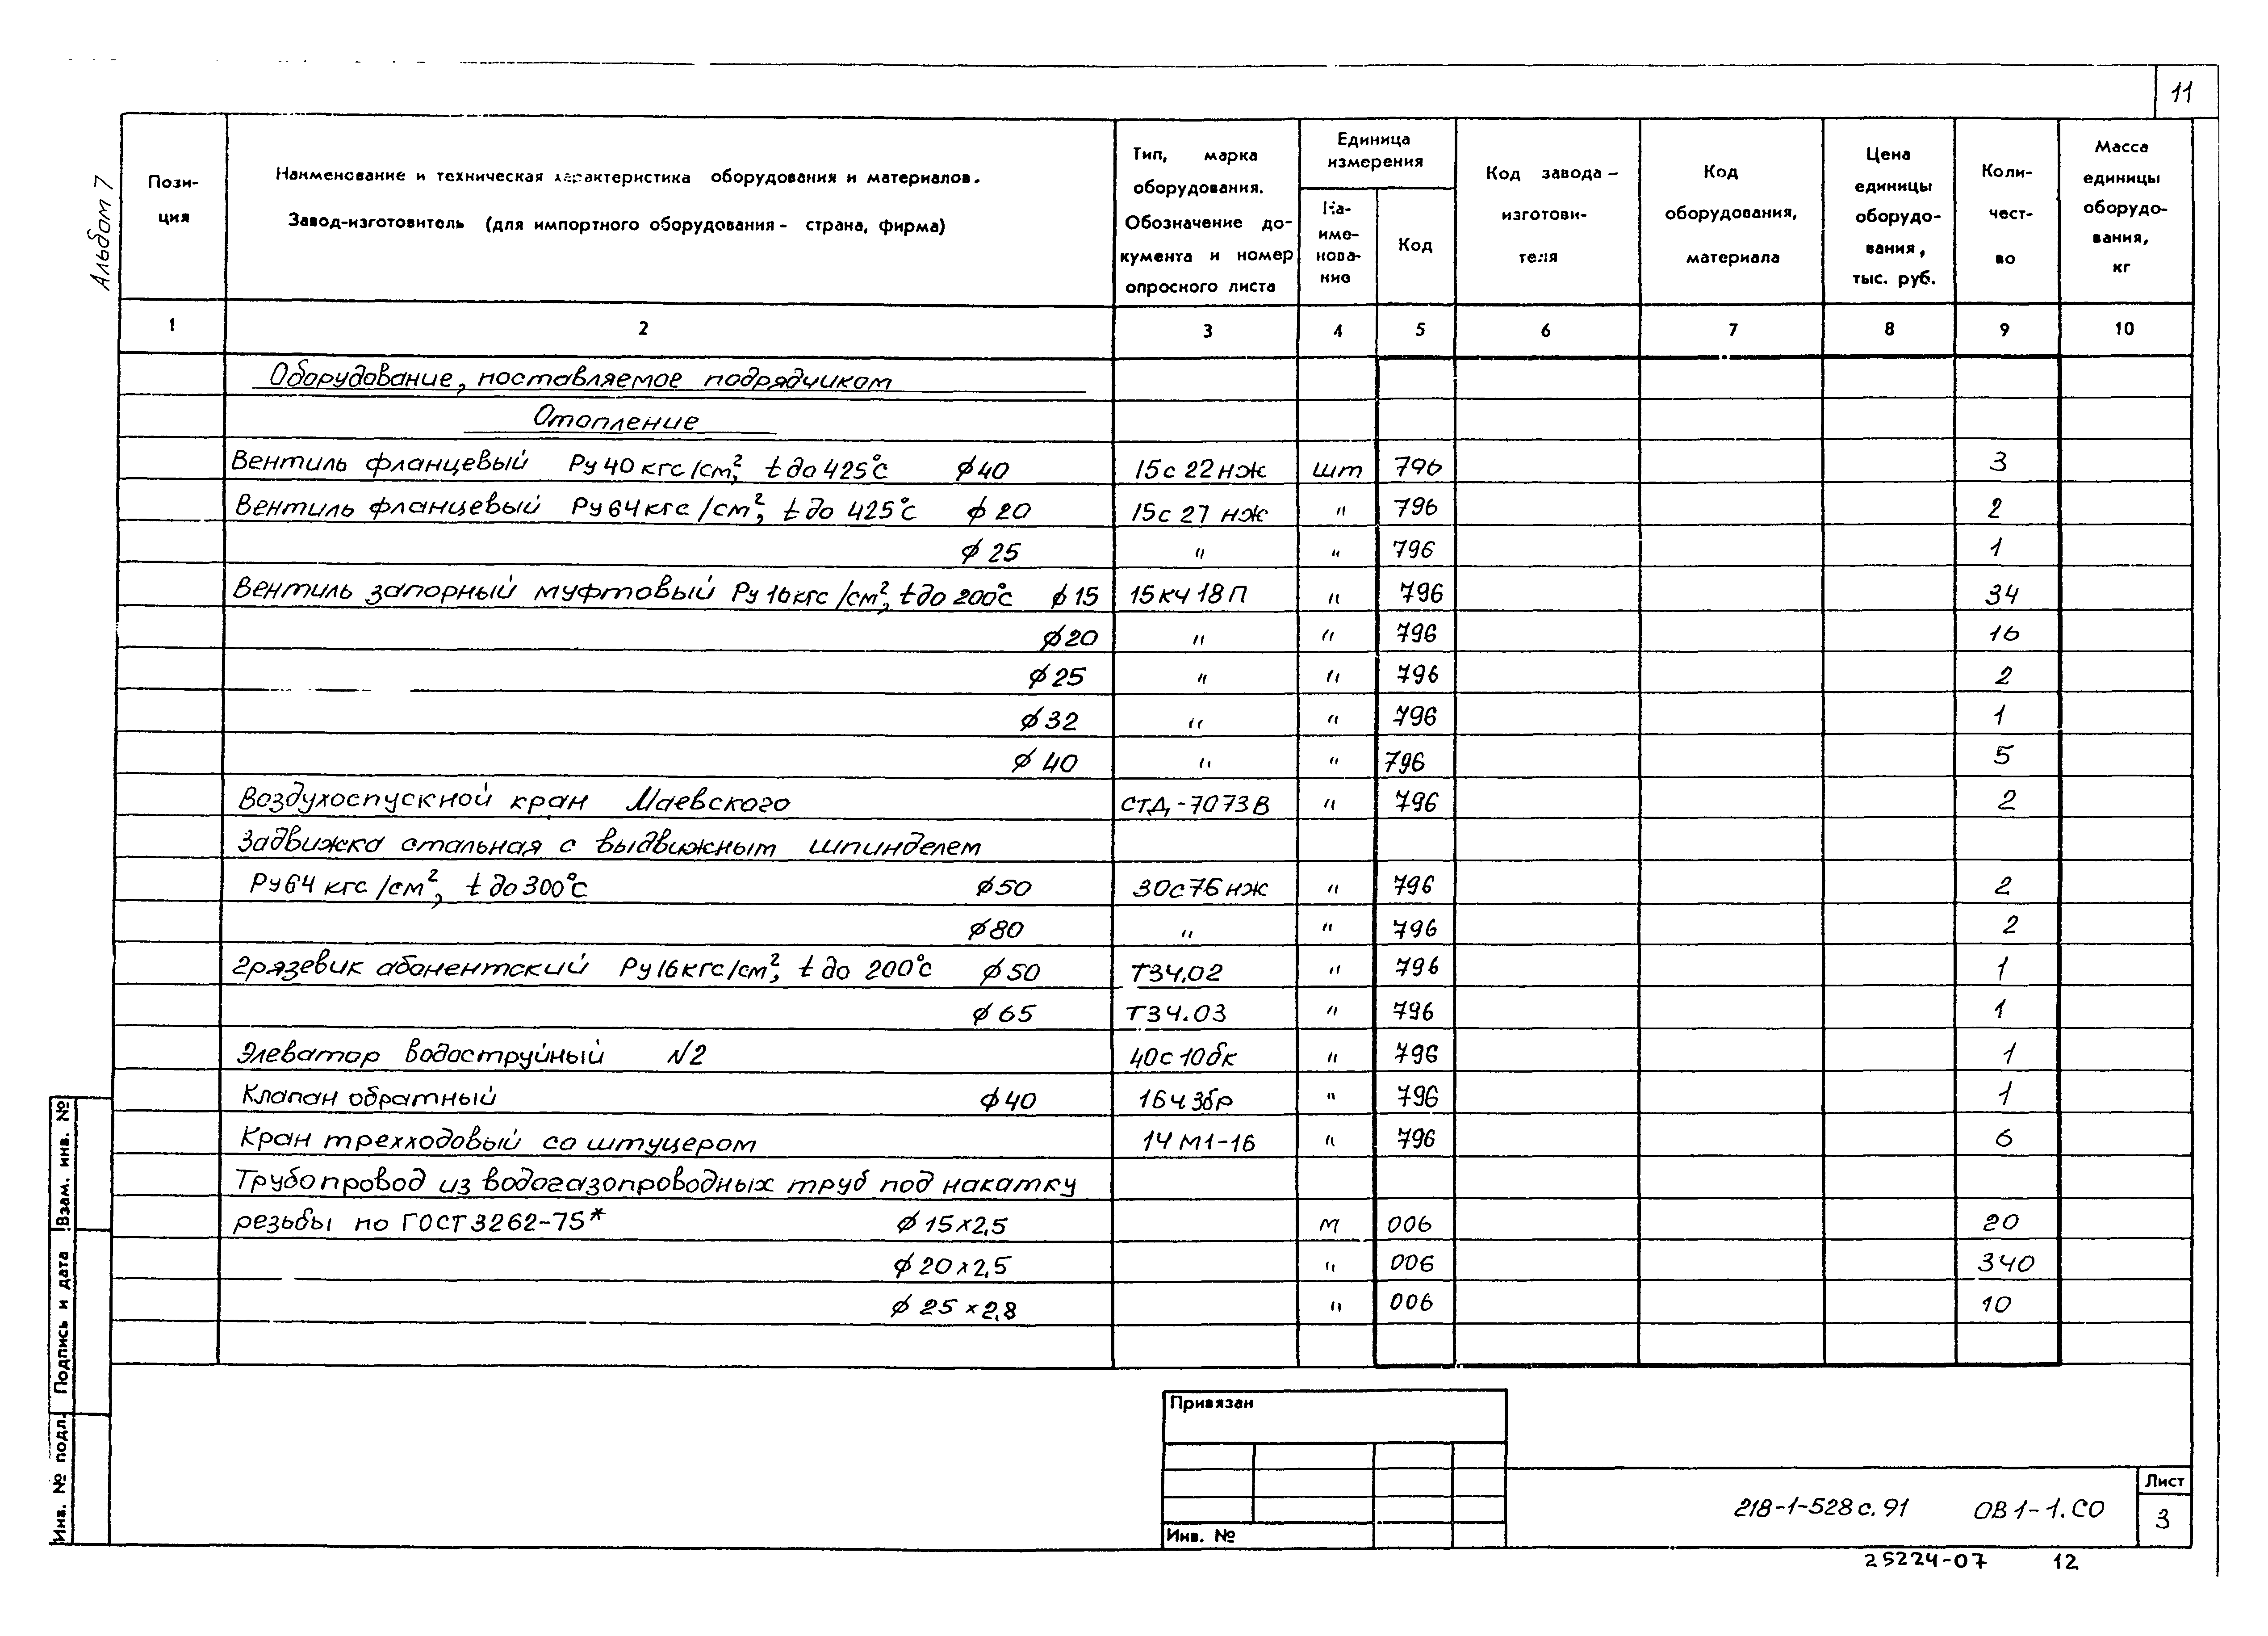 11
Альбом 7
Пози-
ция
Наименование и техническая характеристика оборудования и материалов.
Завод-изготовитель (для импортного оборудования - страна, фирма)
Тип, марка
оборудования.
Обозначение до-
кумента и номер
опросного листа
Единица
измерения
На-
име-
нова-
ние
Код
Код завода -
изготови-
теля
Код
оборудования,
материала
Цена
единицы
оборудо-
вания,
тыс. руб.
Коли-
чест-
во
Масса
единицы
оборудо-
вания,
кг
1 2 3 4 5 6 7 8 9 10
Оборудование, поставляемое подрядчиком
Отопление
Вентиль фланцевый Ру 40 кгс/см², t до 425°С ϕ40 15с 22 нж шт 796 3
Вентиль фланцевый Ру 64 кгс/см², t до 425°С ϕ 20 15с 27 нж " 796 2
ϕ 25 " " 796 1
Вентиль запорный муфтовый Ру 16 кгс/см², t до 200°С ϕ 15 15 кч 18 П " 796 34
ϕ20 " " 796 16
ϕ25 " " 796 2
ϕ32 " " 796 1
ϕ 40 " " 796 5
Воздухоспускной кран Маевского СТД-7073В " 796 2
Задвижка стальная с выдвижным шпинделем
Ру 64 кгс/см², t до 300°С ϕ50 30с 76 нж " 796 2
ϕ80 " " 796 2
Грязевик абонентский Ру 16 кгс/см², t до 200°С ϕ50 Т34.02 " 796 1
ϕ 65 Т34.03 " 796 1
Элеватор водоструйный N2 40с 10 бк " 796 1
Клапан обратный ϕ40 16ч 3бр " 796 1
Кран трехходовый со штуцером 14 М1-16 " 796 6
Трубопровод из водогазопроводных труб под накатку
резьбы по ГОСТ 3262-75* ϕ 15×2,5 м 006 20
ϕ 20×2,5 " 006 340
ϕ 25×2,8 " 006 10
Взам. инв. №
Подпись и дата
Инв. № подл.
Привязан
Инв. №
218-1-528 с. 91 ОВ 1-1.СО
Лист
3
25224-07 12